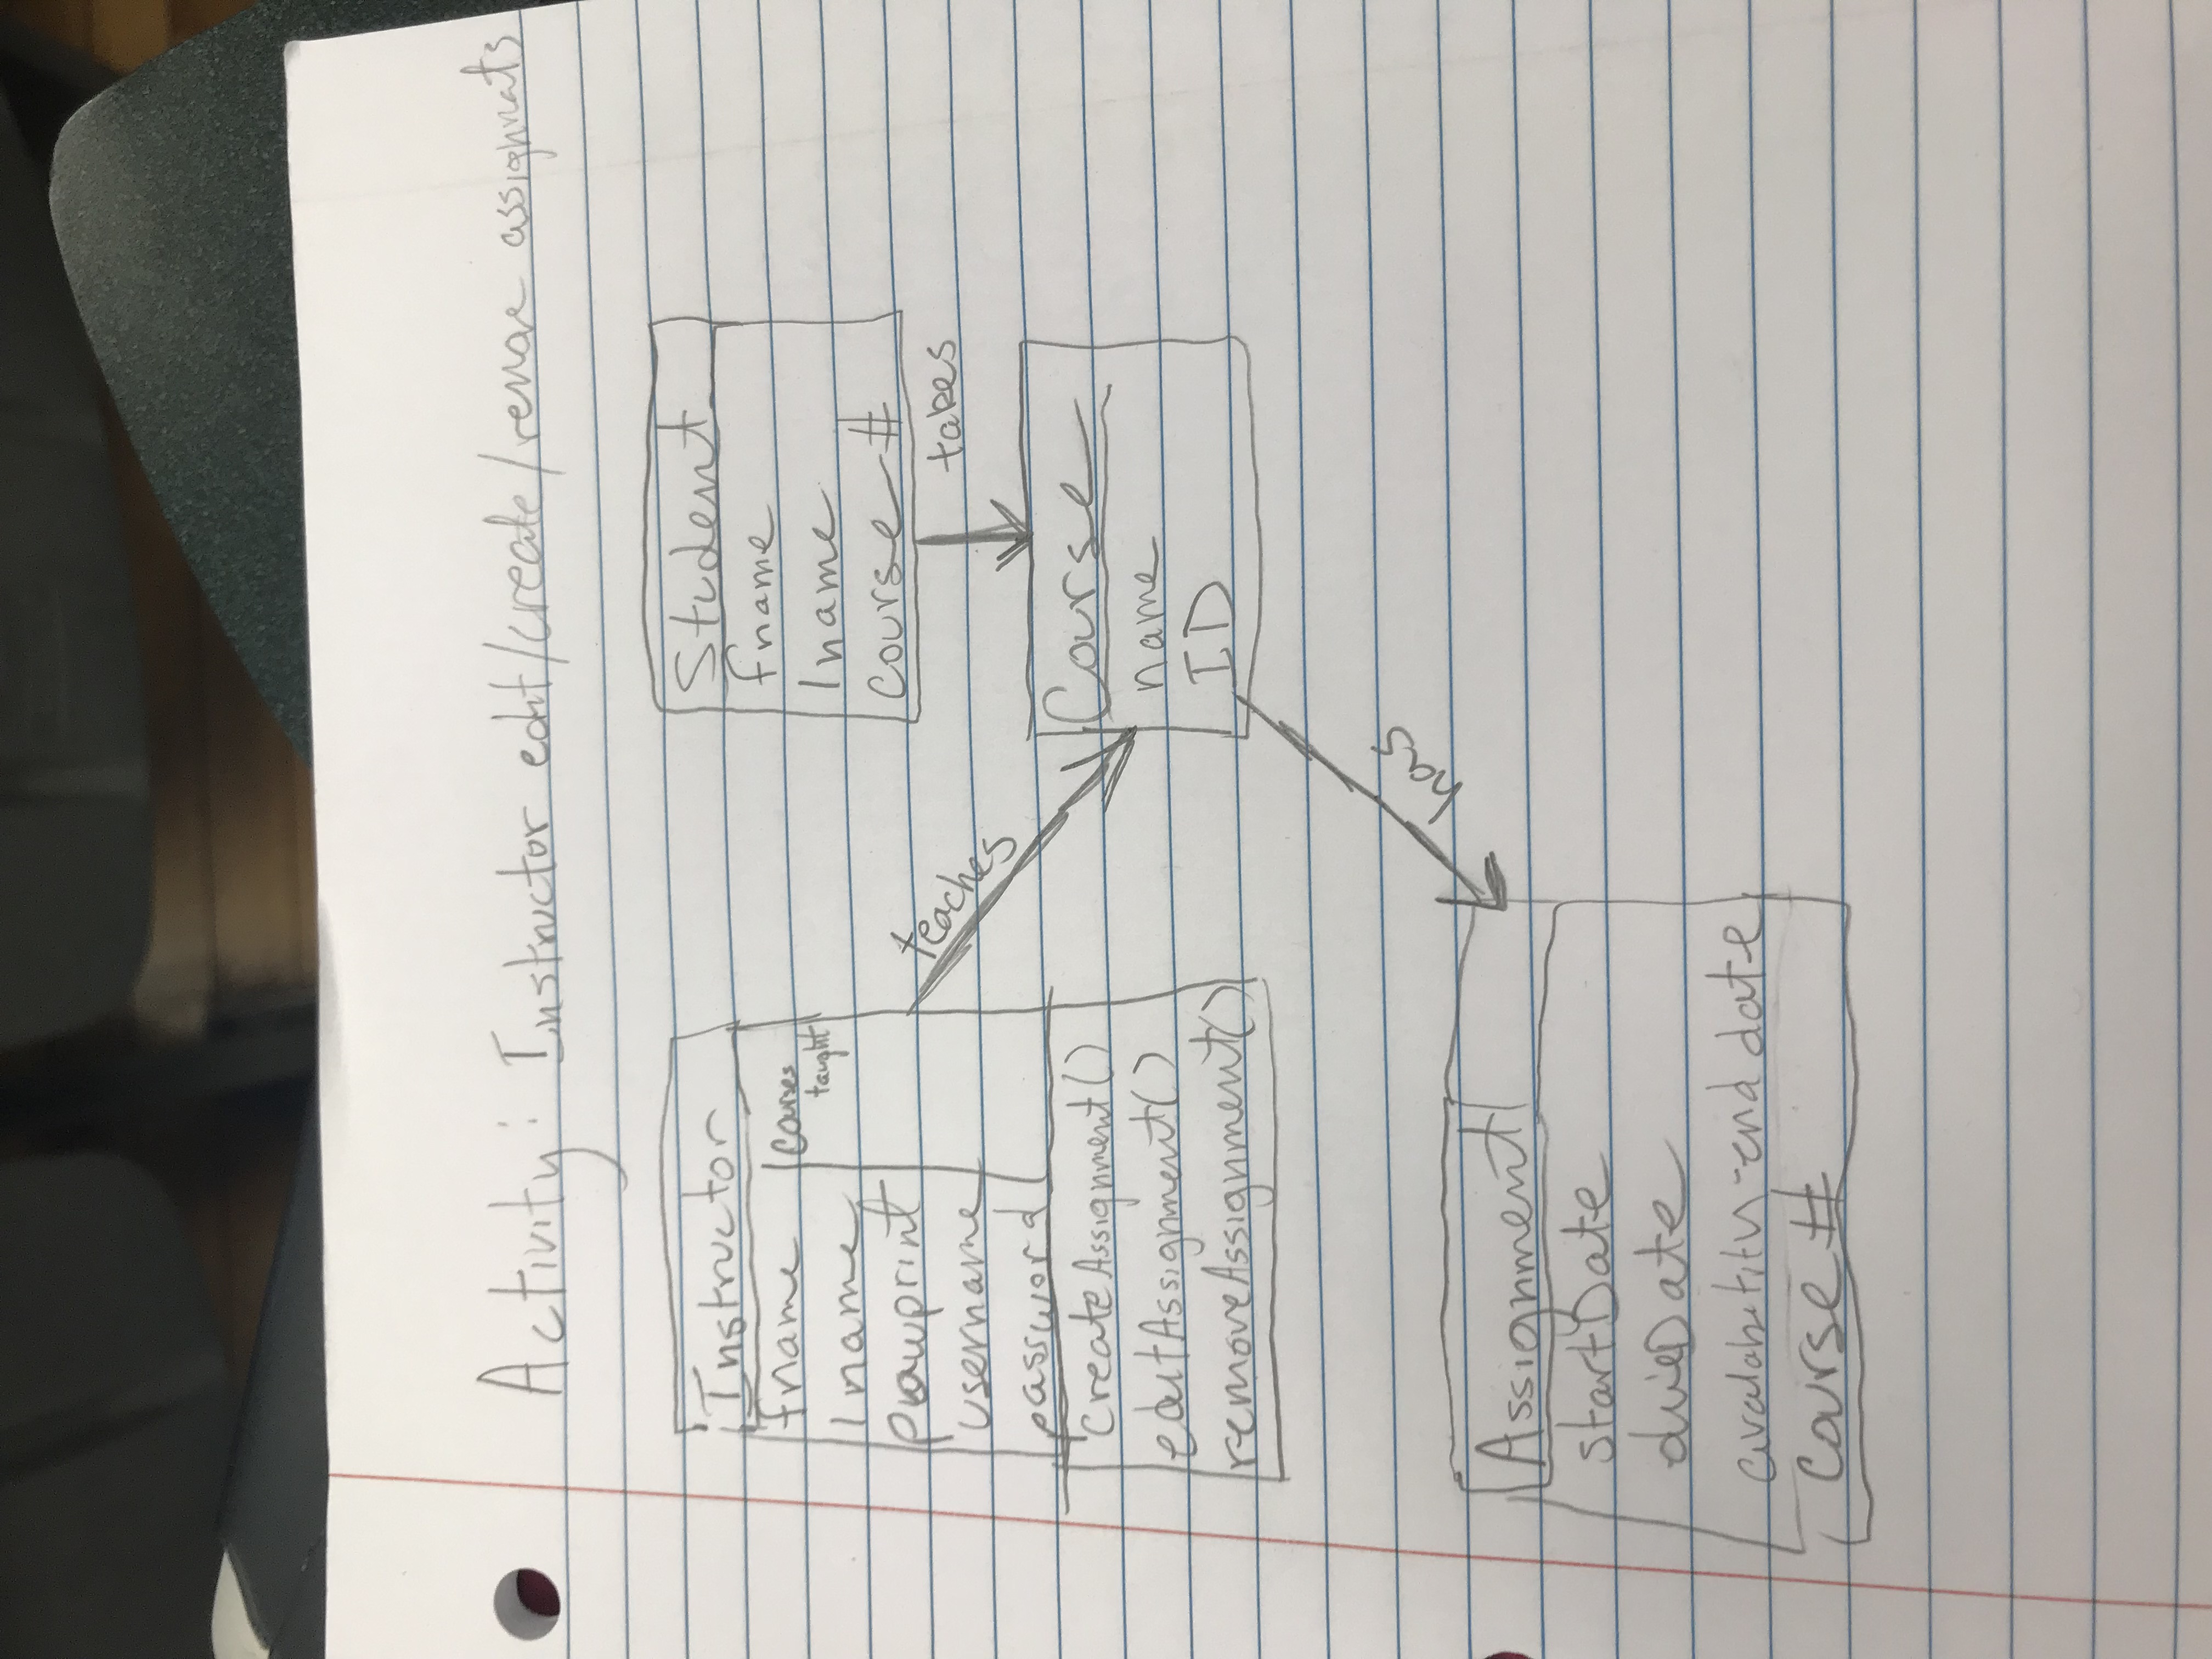 Activity: Instructor edit/create/remove assignments
Instructor
fname
lname
pawprint
username
password
courses
taught
createAssignment()
editAssignment()
removeAssignment()
teaches
Student
fname
lname
course #
takes
Course
name
ID
has
Assignment
startDate
dueDate
availability-end date
course #